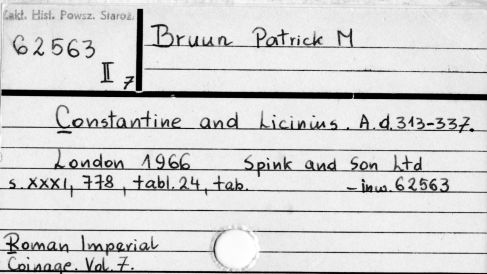 Zakł. Hist. Powsz. Staroż.
62563
II 7
Bruun Patrick M
Constantine and Licinius. A.d.313-337.
London 1966 Spink and Son Ltd
s. XXXI, 778, tabl. 24, tab. - inw. 62563
Roman Imperial
Coinage. Vol. 7.